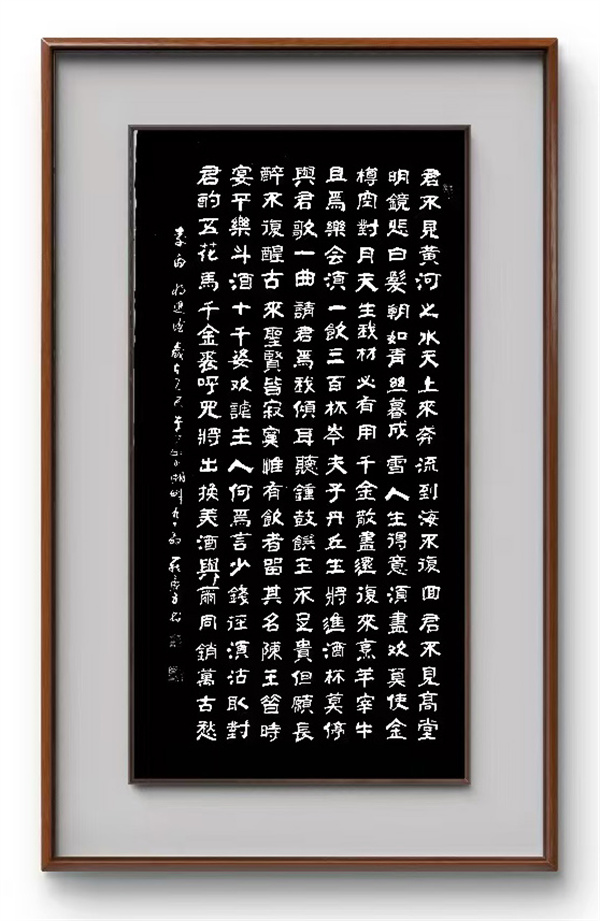 君不見黃河之水天上來奔流到海不復回君不見高堂
明鏡悲白髮朝如青絲暮成雪人生得意須盡欢莫使金
樽空對月天生我材必有用千金散盡還復來烹羊宰牛
且爲樂会須一飲三百杯岑夫子丹丘生將進酒杯莫停
與君歌一曲請君爲我傾耳聽鍾鼓饌玉不足貴但願長
醉不復醒古來聖賢皆寂寞惟有飲者留其名陳王昔時
宴平樂斗酒十千恣欢謔主人何爲言少錢徑須沽取對
君酌五花馬千金裘呼兒將出換美酒與爾同銷萬古愁
李白 将進酒 歲